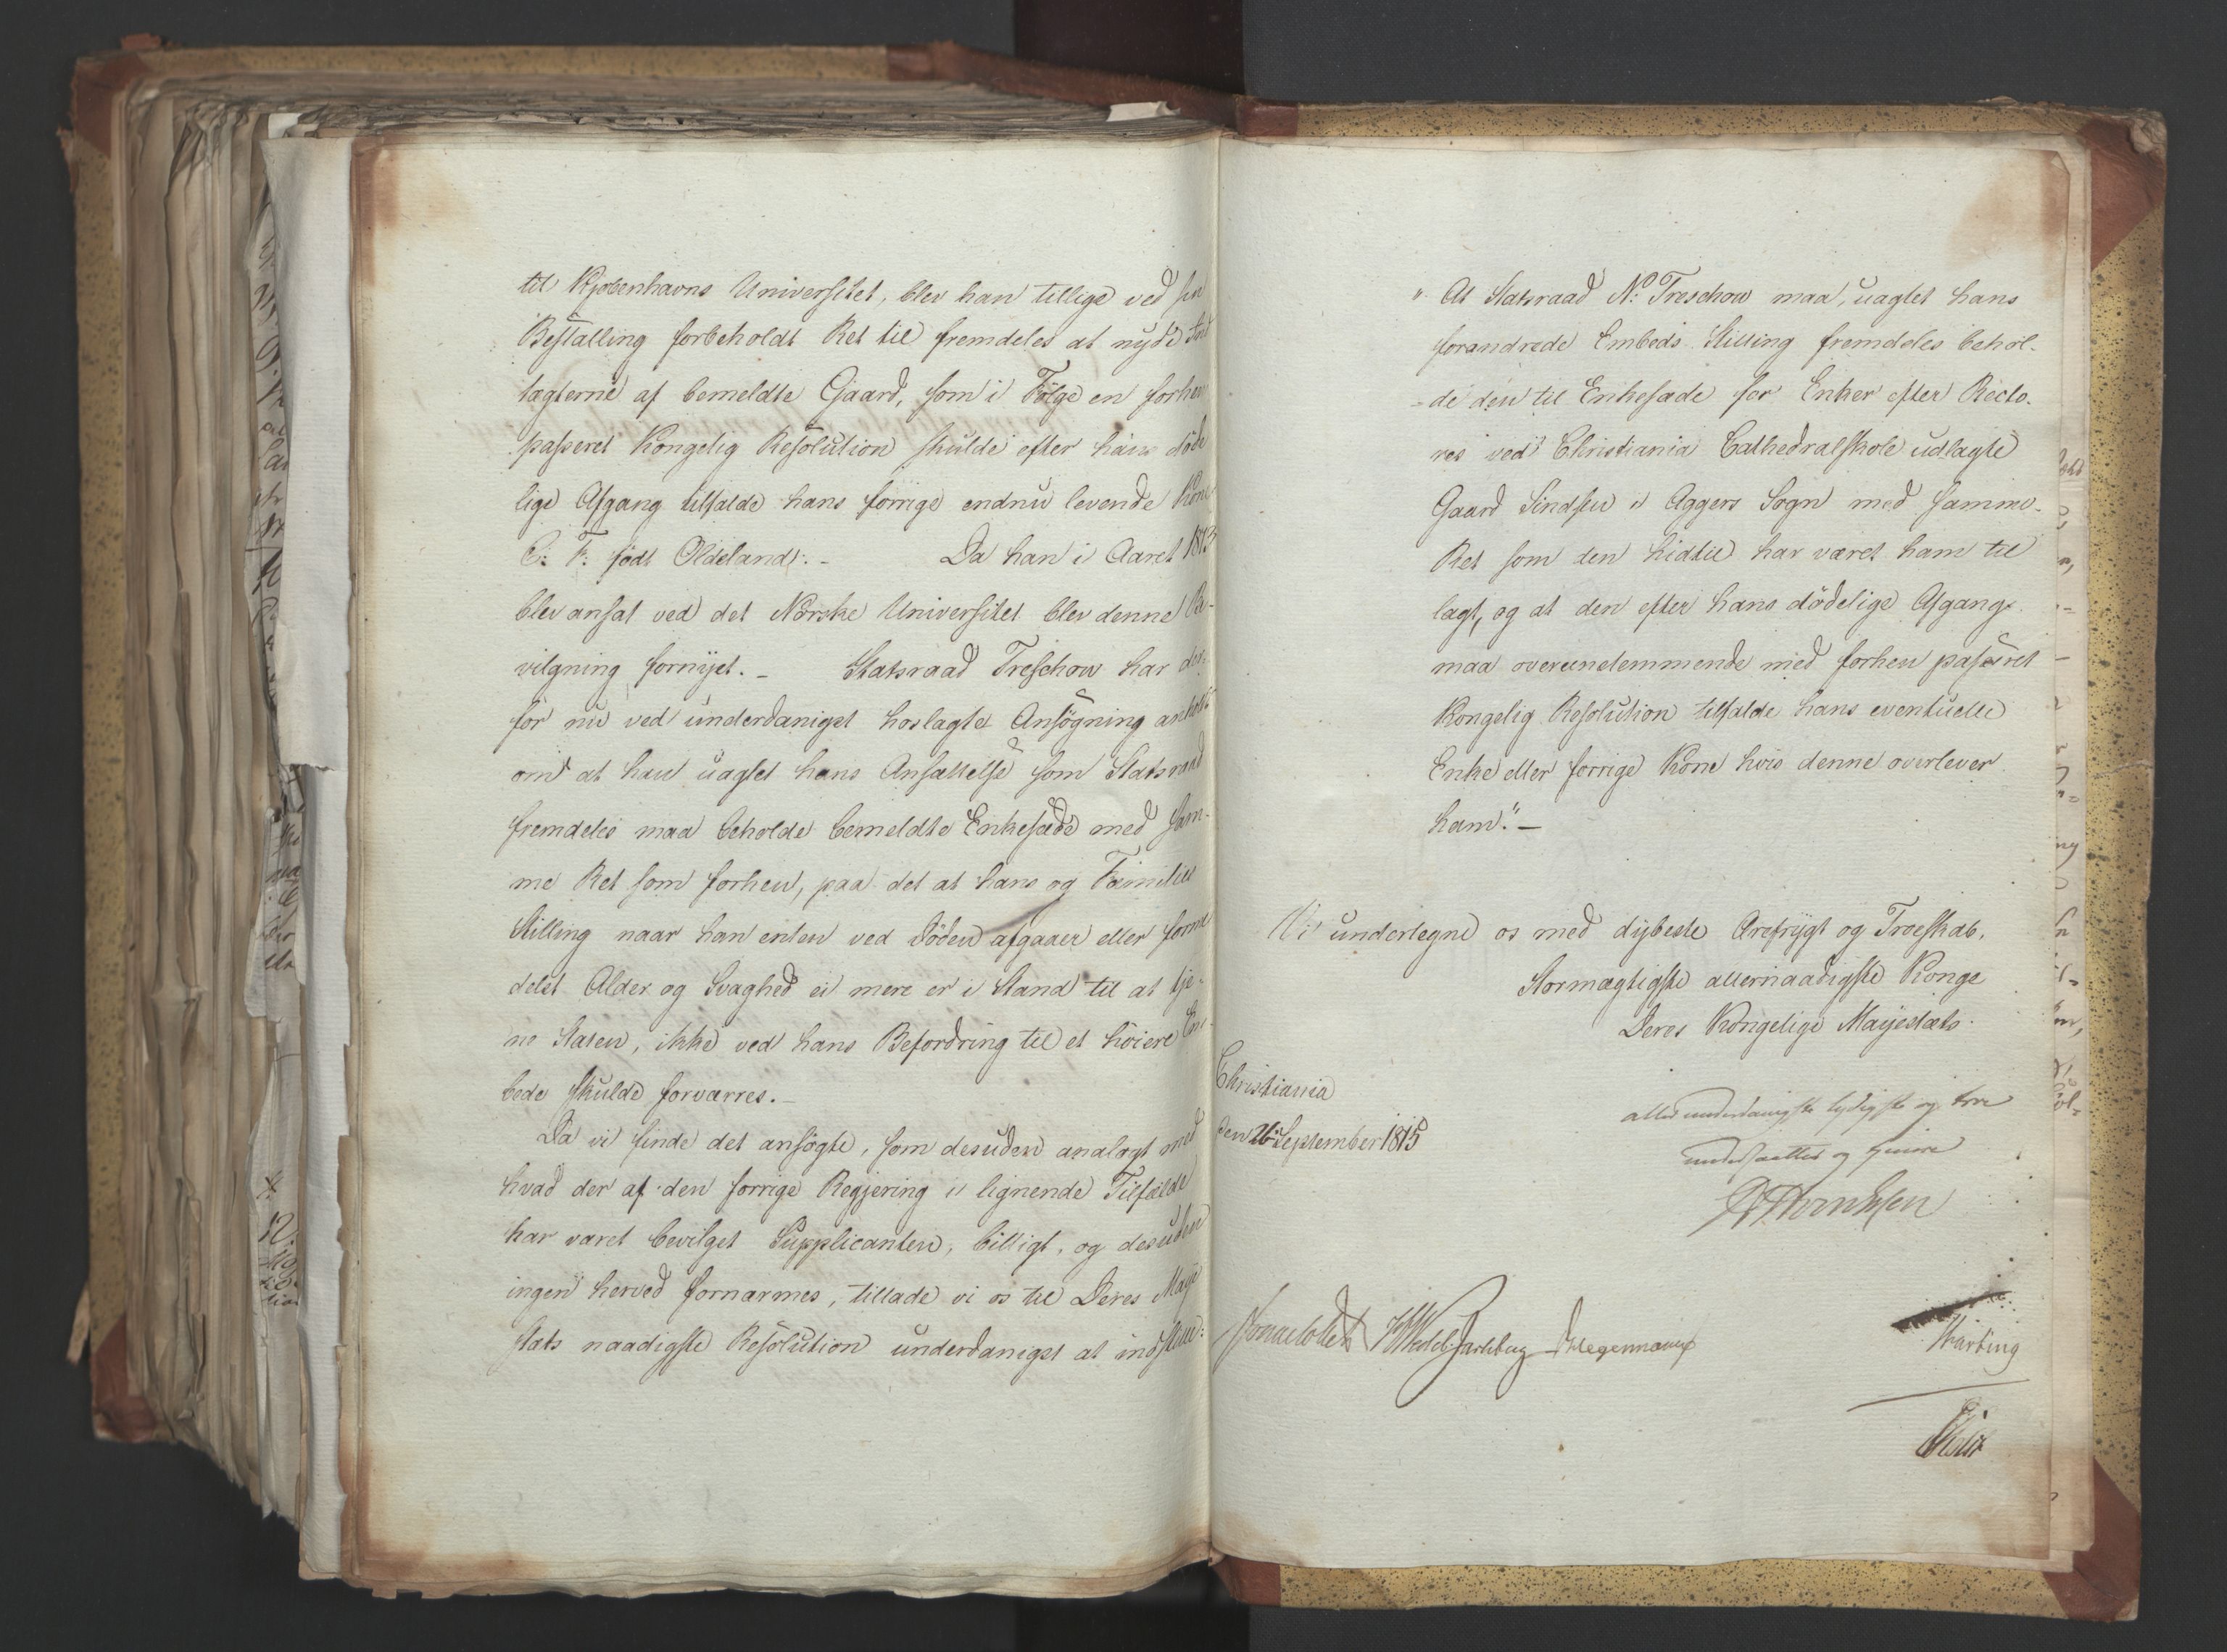 til Kjøbenhavns Universitet, blev han tillige ved sin
Bestalling forbeholdt Ret til fremdeles at nyde Ind
tægterne af bemeldte Gaard, som i Følge en forhen
passeret Kongelig Resolution skulde efter hans døde
lige Afgang tilfalde hans forrige endnu levende Kone
C: F: født Oldeland:. - Da han i Aaret 1813
blev ansat ved det Norske Universitet blev denne Be-
vilgning fornyet. - Statsraad Treschow har der-
for nu ved underdanigst hoslagte Ansøgning anholdt
om at han uagtet hans Ansættelse som Statsraad
fremdeles maa beholde bemeldte Enkesæde med sam-
me Ret som forhen, paa det at hans og Families
Stilling naar han enten ved Døden afgaaer eller forme
delst Alder og Svaghed ei mere er i Stand til at tje-
ne Staten, ikke ved hans Befordring til et høiere Em-
bede skulde forværres. -
Da vi finde det ansøgte, som desuden analogt med
hvad der af den forrige Regjering i lignende Tilfælde
har været bevilget Supplicanten, billigt, og desuden
ingen herved fornærmes, tillade vi os til Deres Maje
stæts naadigste Resolution underdanigst at indstille:
" At Statsraad N: Treschow maa, uagtet hans
forandrede Embeds Stilling fremdeles behol-
-de den til Enkesæde for Enker efter Recto-
res ved Christiania Cathedralskole udlagte
Gaard Sindsen i Aggers Sogn med samme
Ret som den hidtil har været ham til
lagt, og at den efter hans dødelige Afgang
maa overeenstemmende med forhen passeret
Kongelig Resolution tilfalde hans eventuelle
Enke eller forrige Kone hvis denne overlever
ham." -
Vi undertegne os med dybeste Ærefrygt og Troeskab.
Stormægtigste allernaadigste Konge
Deres Kongelige Majestæts
Christiania
den 26 September 1815
allerunderdanigste lydigste og troe
undersaatter og tjenere
Sommerhielm HWedel Jarlsberg DHegermann